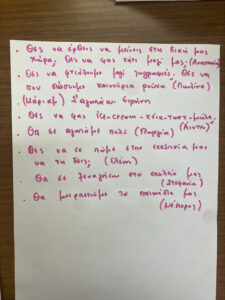 . Θες να έρθεις να μείνεις στη δική μας
χώρα; Θες να φας κάτι μαζί μας; (Αναστασία)
. Θες να φτιάξουμε μαζί ζωγραφιές; Θες να
σου δώσουμε καινούρια ρούχα; (Παυλίνα)
(Μάριαμ) Σ'αγαπάω Ειρήνη
. Θες να φας ice-cream - κέικ - τοστ - μήλα;
. Θα σε αγαπάμε πολύ (Μαρία)
. Θες να σε πάμε στην εκκλησία μας
να τη δεις; (Ελένη)
. Θα σε ξεναγήσω στο σχολείο μας
(Στεφανία)
. Θα μοιραστούμε τα παιχνίδια μας